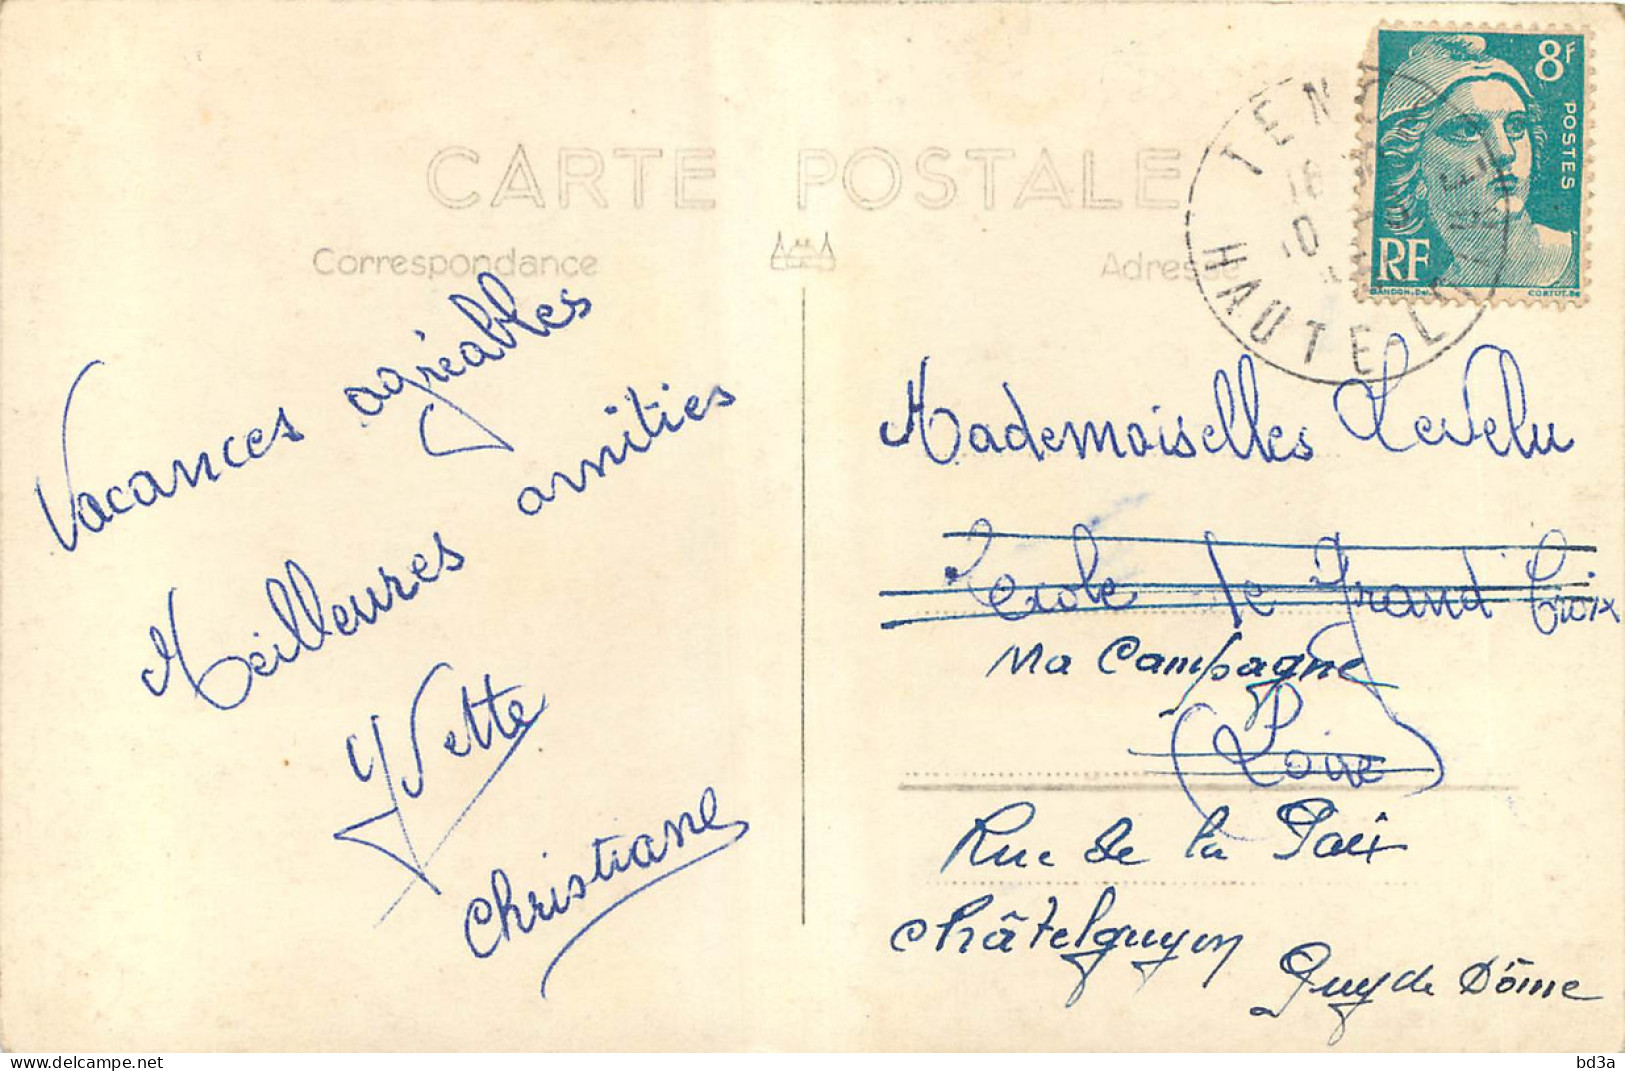 CARTE POSTALE
Correspondance
Adresse
Vacances agréables
Meilleures amitiés
Yvette
Christiane
8F
POSTES
RF
GANDON. Del.
CORTOT. Sc
TENC
HAUTE L
16
10
Mademoiselles LeVelu
Ecole le Grand' Croix
Ma Campagne
(Loire)
Rue de la Paix
Châtelguyon
Puy de Dôme
bd3a